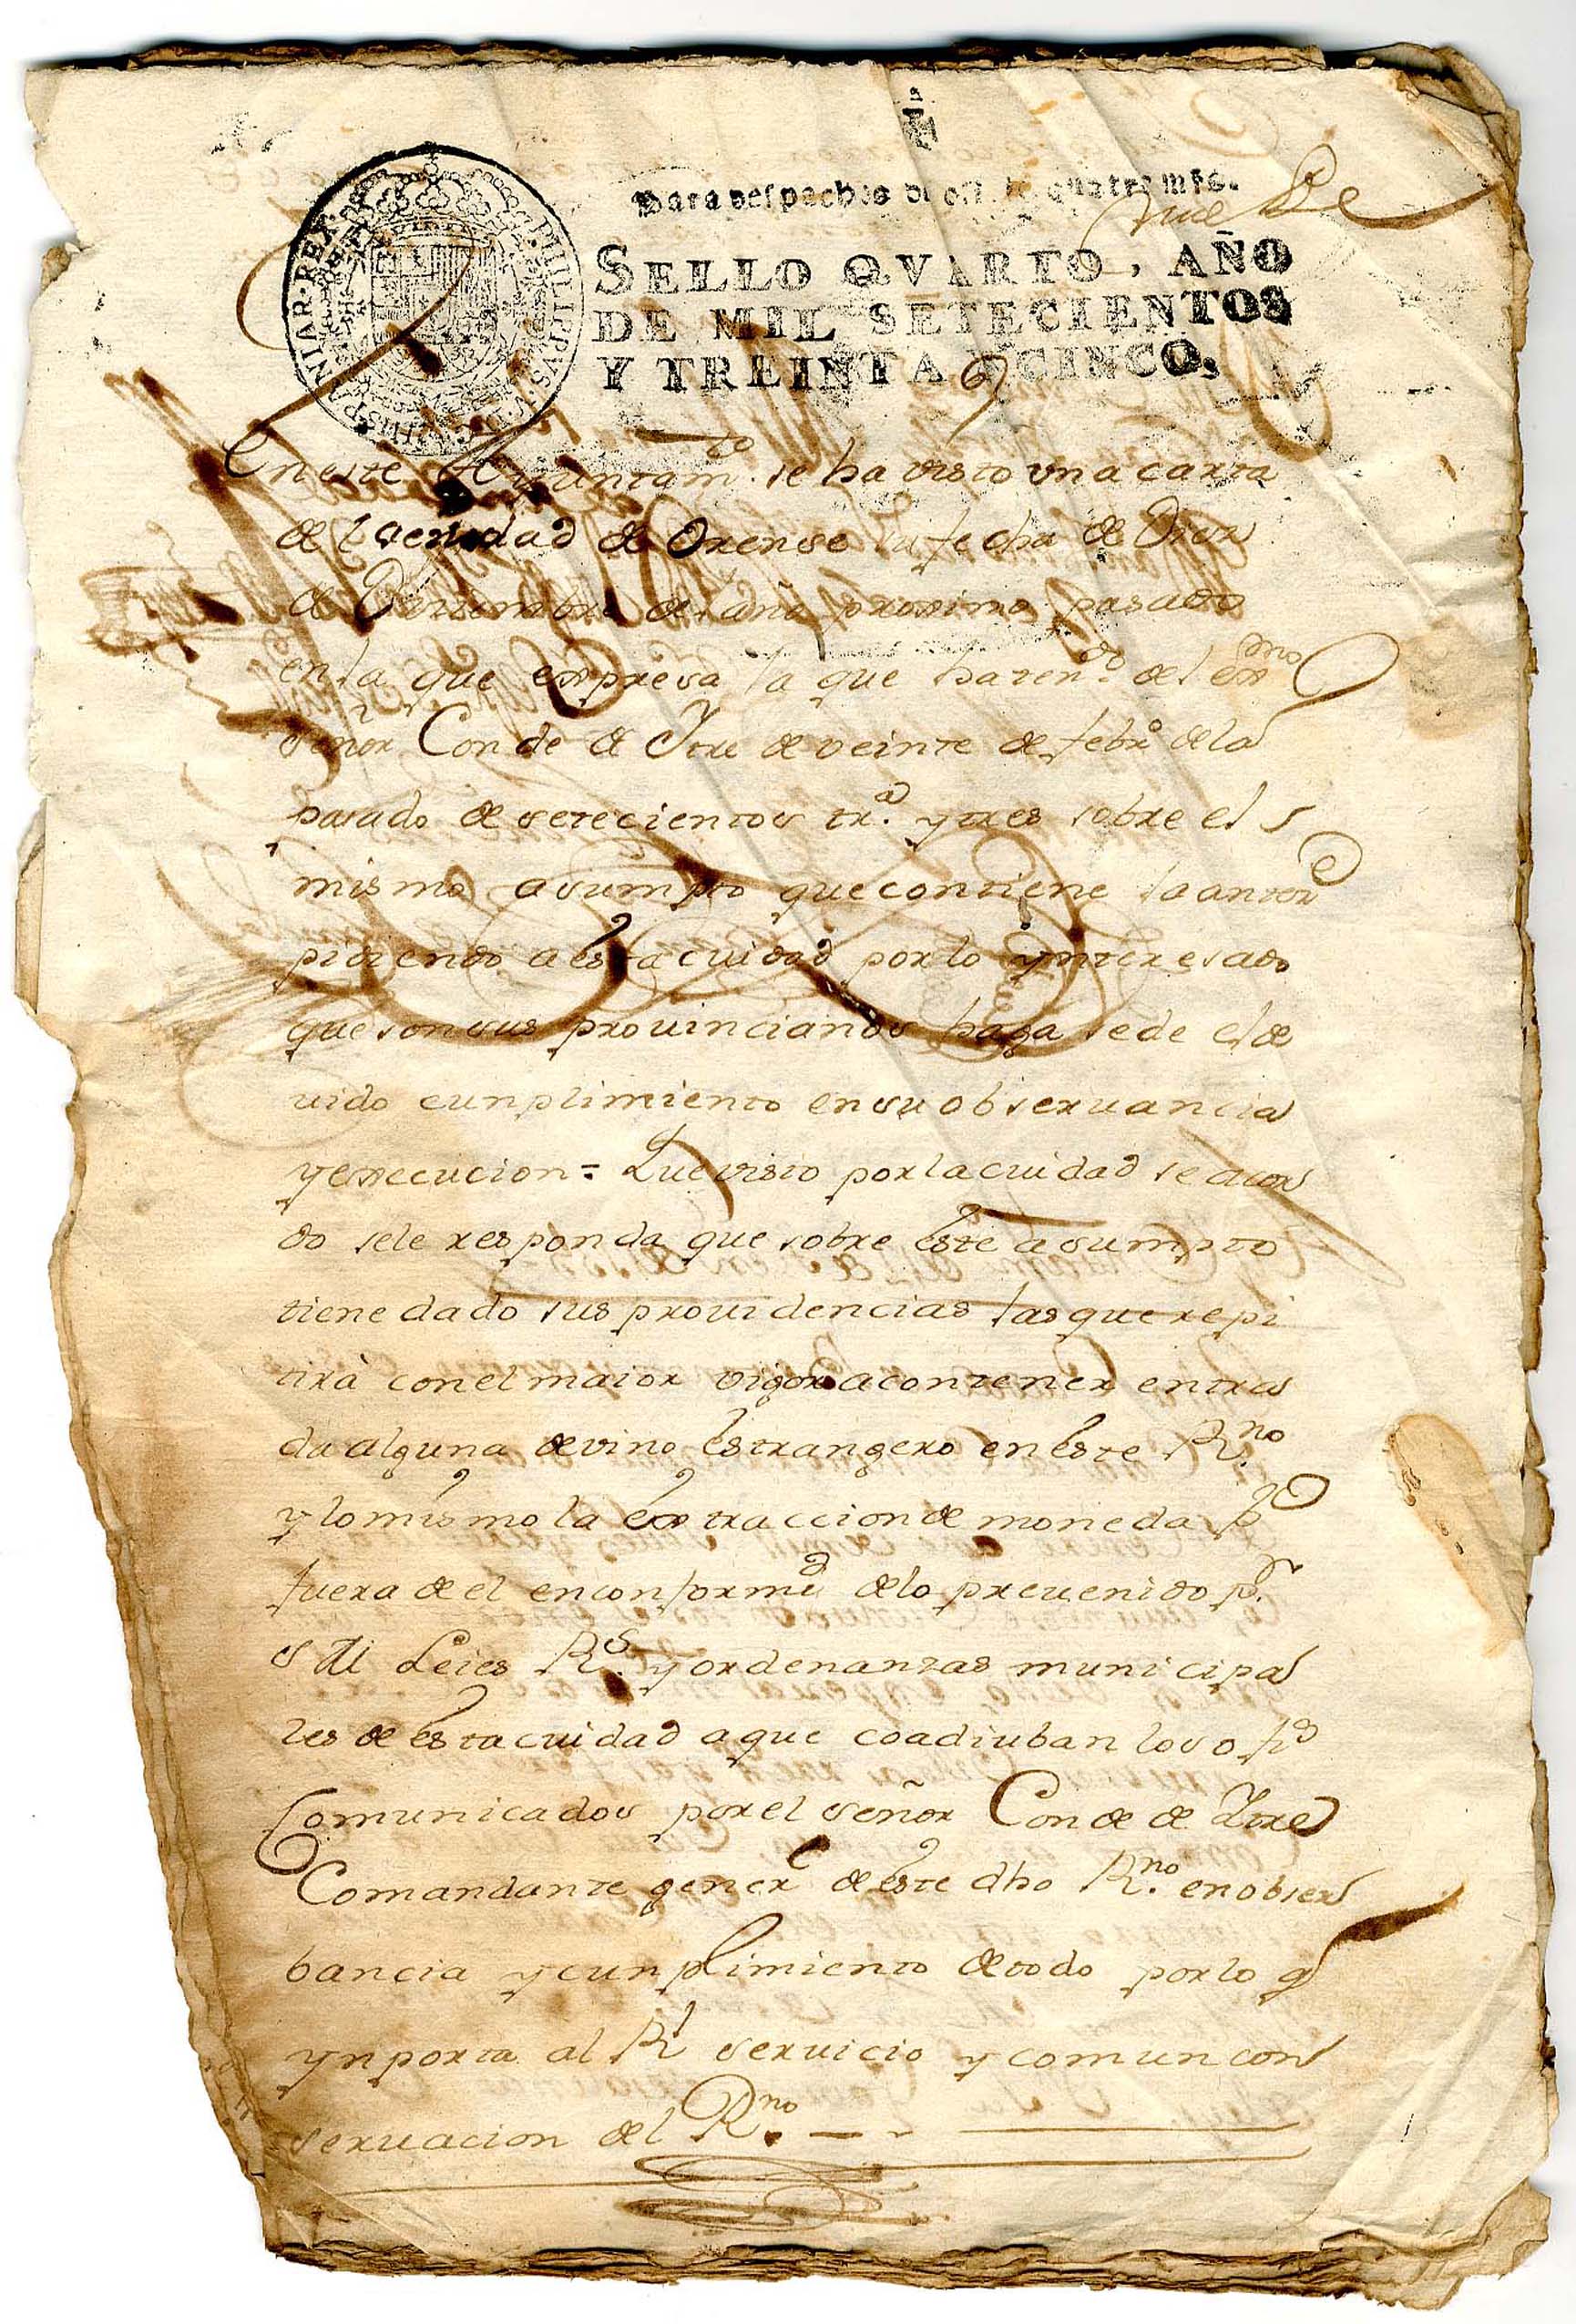 Para despachos de ofi quatro mrs.
SELLO QVARTO, AÑO
DE MIL SETECIENTOS
Y TREINTA Y CINCO,
PHILIPPVS V D G HISPANIAR REX
En este Ayuntamto. se ha visto vna carta
de la ciudad de Orense su fecha de Diez
de Diziembre del año proximo pasado
en la que expresa la que ha tenido. del exmo
señor Conde de Ytre de veinte de febro de la
pasado de setecientos tra. y tres sobre el
mismo asumpto que contiene la anter
pidiendo a esta ciudad por lo ynteresado
que son sus prouincianos haga se de el de
uido cunplimiento en su obseruancia
y execucion = Que visto por la ciudad se acor
do se le responda que sobre este asumpto
tiene dado sus prouidencias las que repi
tirà con el maior vigor a contener entra
da alguna de vino estrangero en este Rno.
y lo mismo la extraccion de moneda pa
fuera de el en conformd de lo preuenido pr.
Leies Rs. y ordenanzas municipa
les de esta ciudad a que coadiuban los
Comunicados por el señor Conde de Ytre
Comandante generl de este dho Rno. en obser
bancia y cunplimiento de todo por lo q
ynporta al Rl seruicio y comun con
seruacion del Rno.